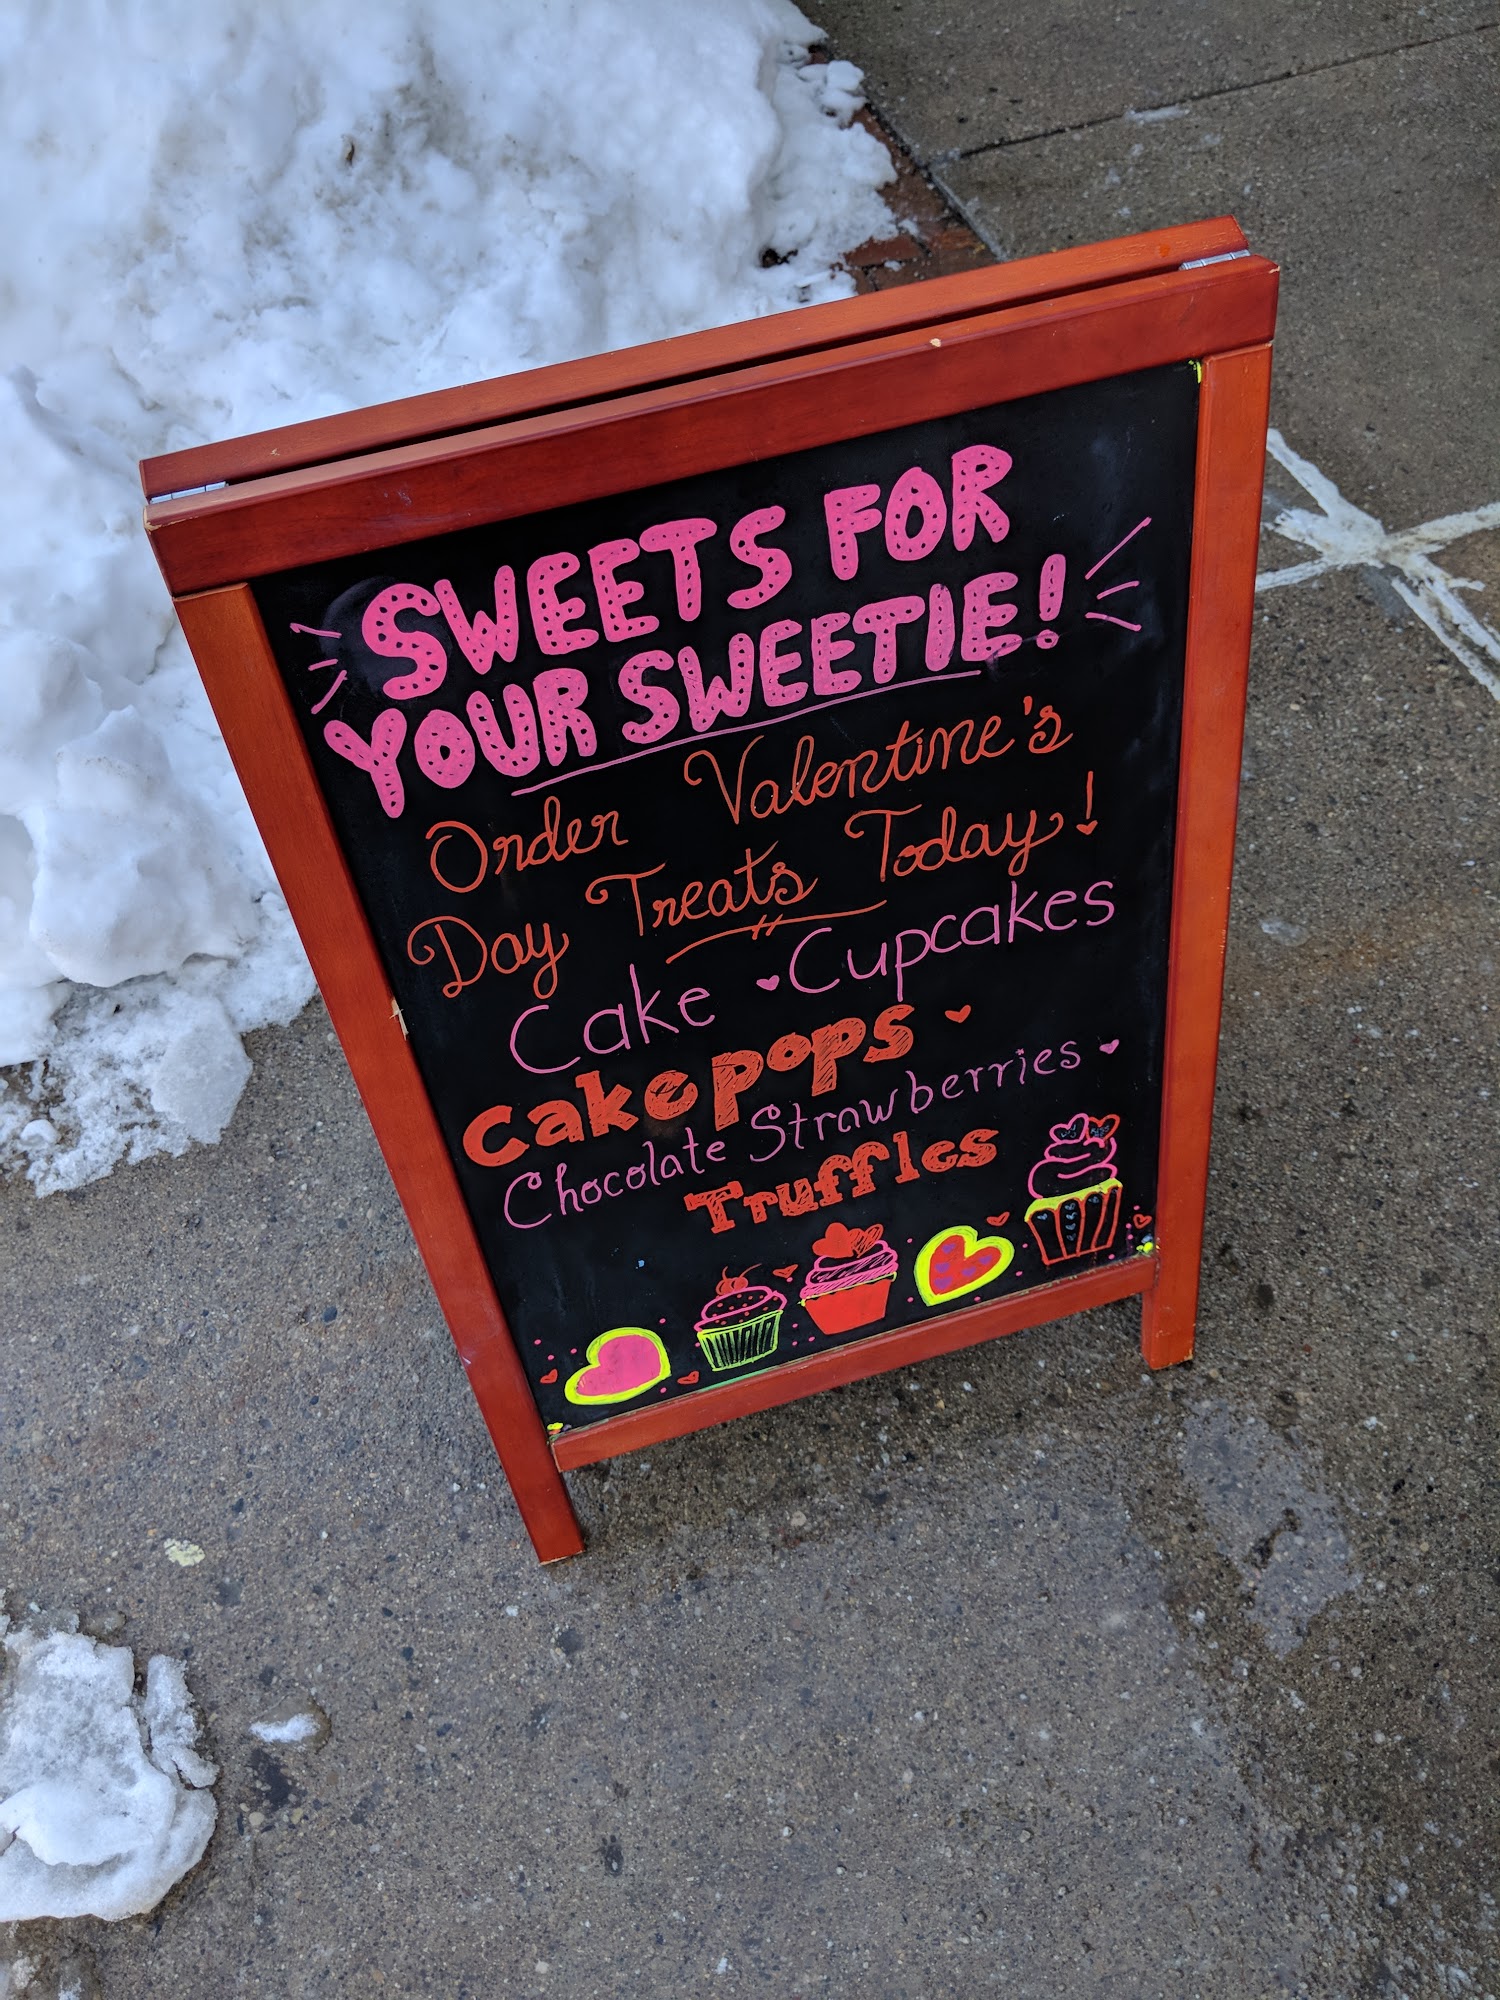 SWEETS FOR
YOUR SWEETIE!
Order Valentine's
Day Treats Today!
Cake Cupcakes
Cakepops
Chocolate Strawberries
Truffles